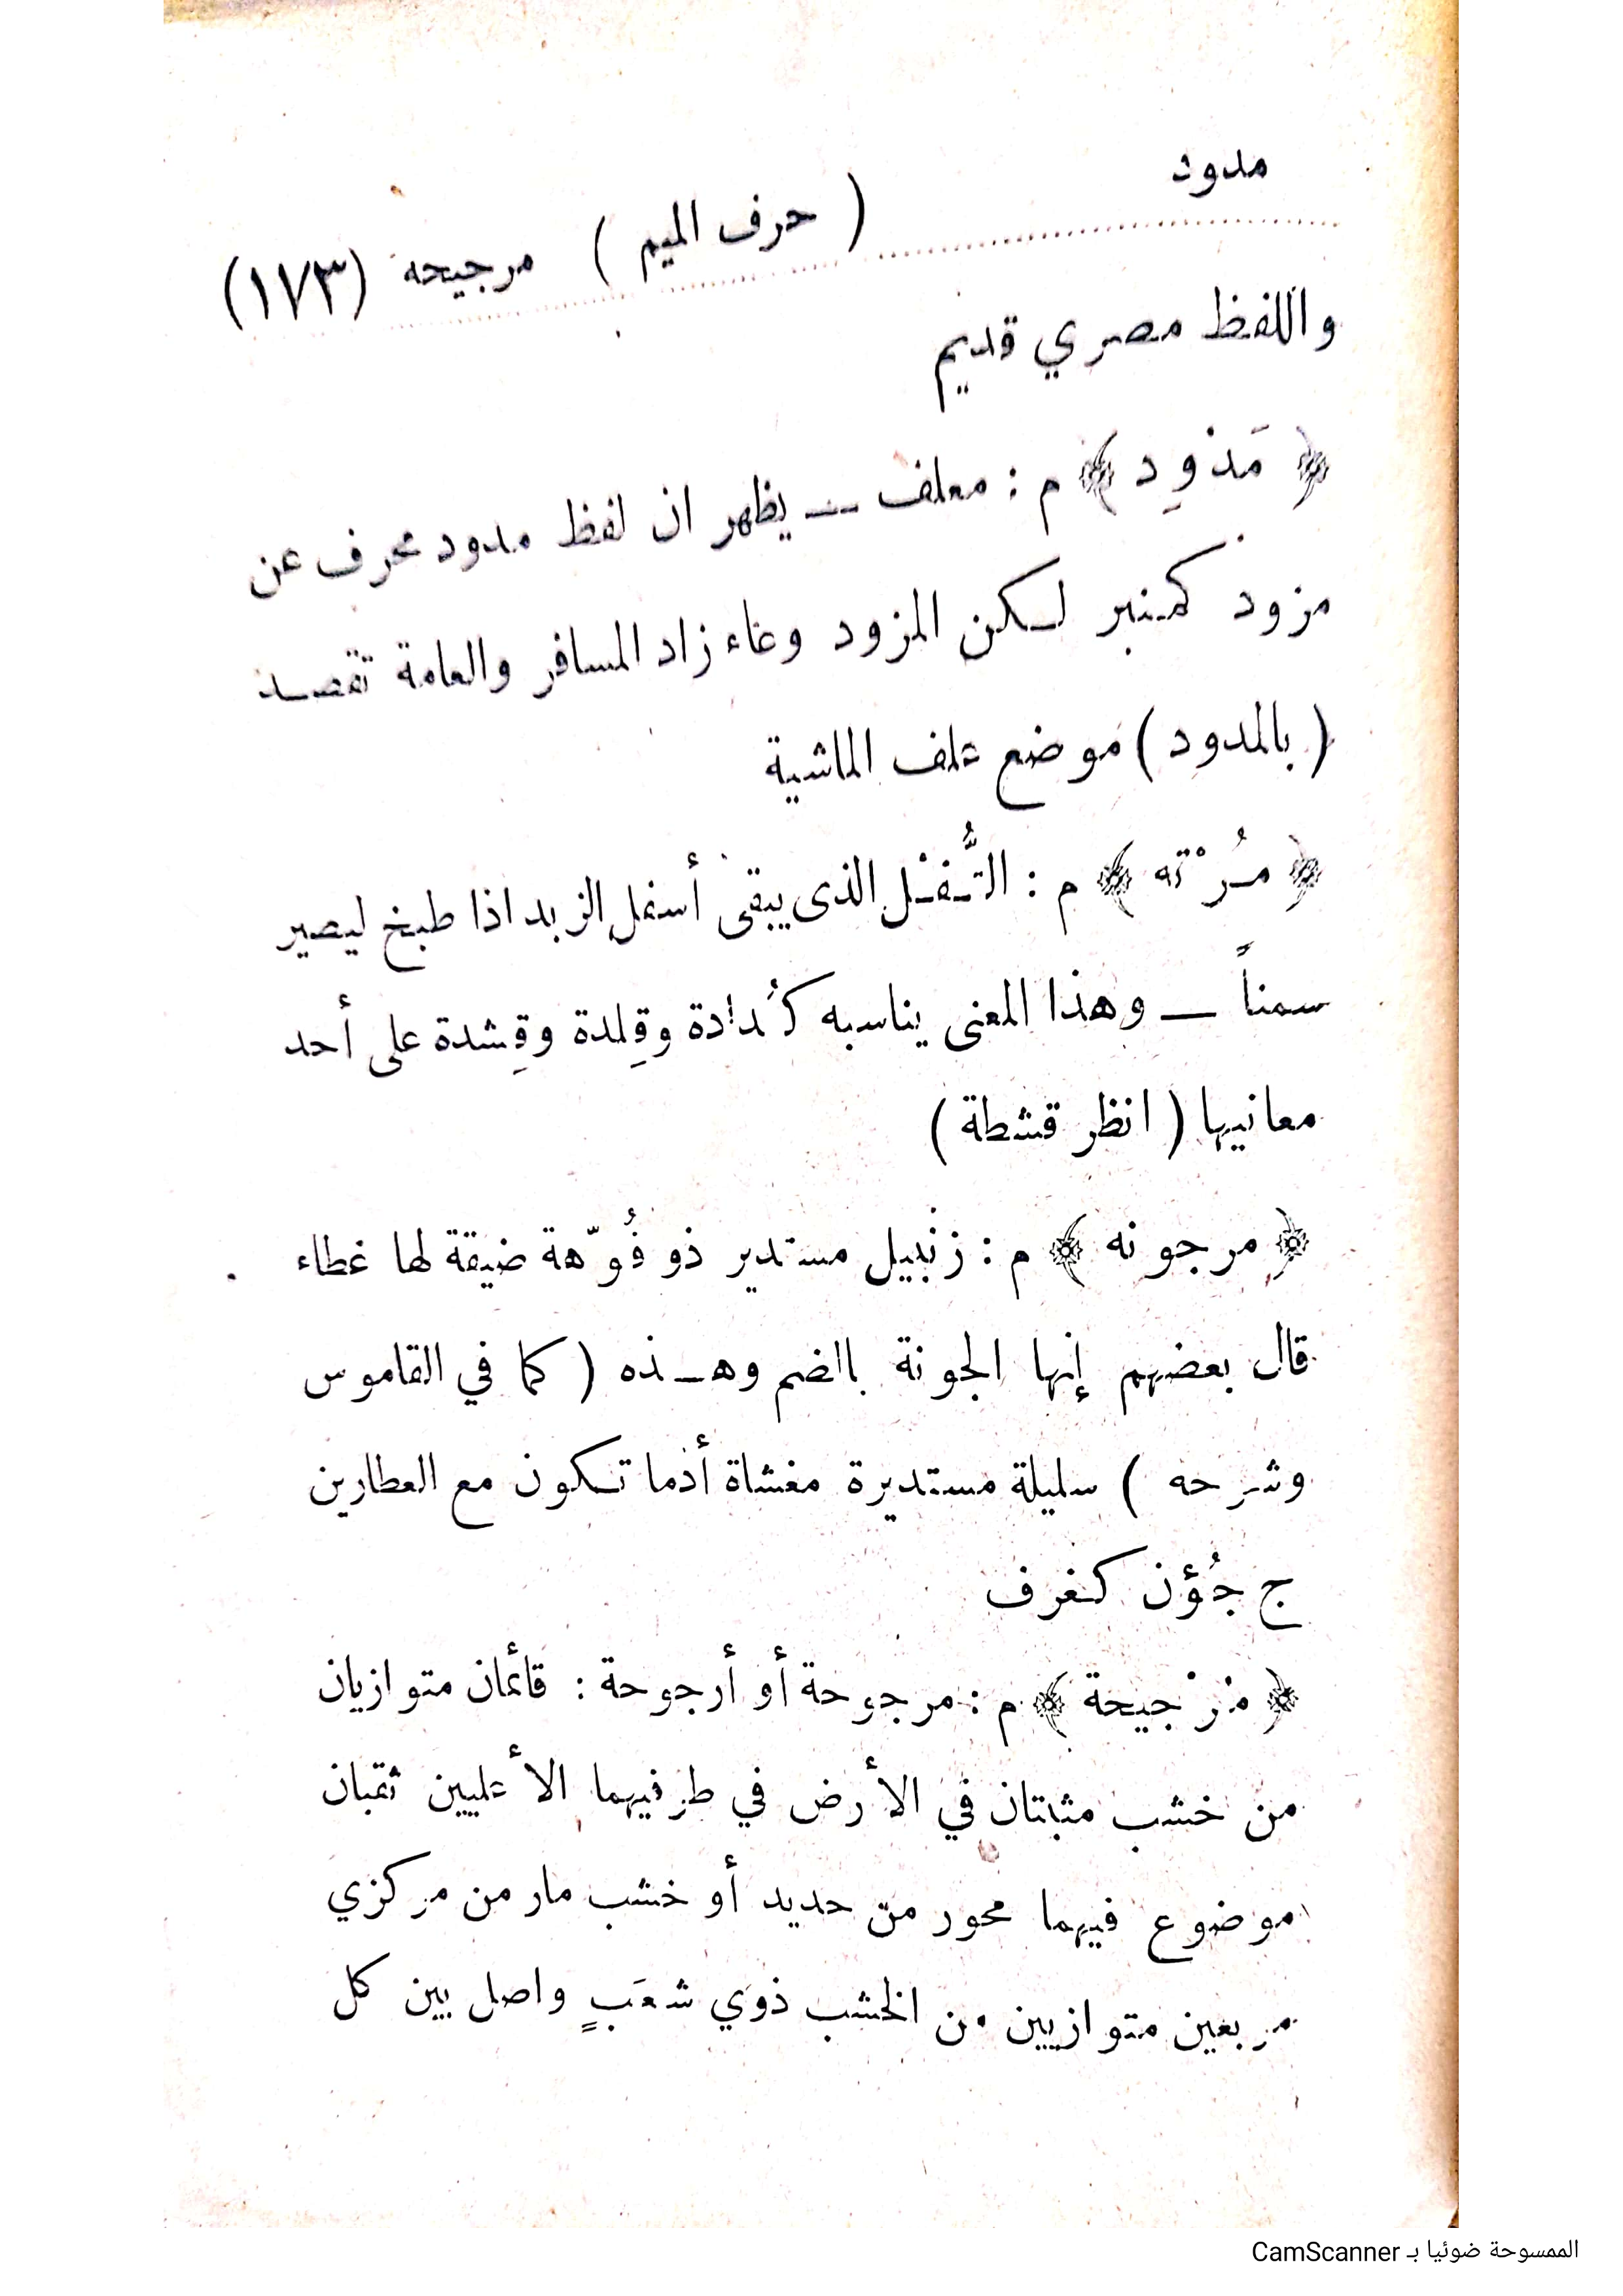 مدود ( حرف الميم ) مرجيحه (١٧٣)
واللفظ مصري قديم
﴿ مَدْوِد ﴾ م : معلف — يظهر ان لفظ مدود محرف عن
مزود كمنبر لكن المزود وعاء زاد المسافر والعامة تقصد
( بالمدود ) موضع علف الماشية
﴿ مُرْته ﴾ م : التُّفْل الذى يبقى أسفل الزبد اذا طبخ ليصير
سمناً — وهذا المعنى يناسبه كُدادة وقِلدة وقِشدة على أحد
معانيها ( انظر قشطة )
﴿ مرجونه ﴾ م : زنبيل مستدير ذو فُوّهة ضيقة لها غطاء
قال بعضهم إنها الجونة بالضم وهذه ( كما في القاموس
وشرحه ) سليلة مستديرة مغشاة أدما تكون مع العطارين
ج جُؤن كغرف
﴿ مْرْجيحة ﴾ م : مرجوحة أو أرجوحة : قائمان متوازيان
من خشب مثبتان في الأرض في طرفيهما الأعليين ثقبان
موضوع فيهما محور من حديد أو خشب مار من مركزي
مربعين متوازيين من الخشب ذوي شعَبٍ واصل بين كل
الممسوحة ضوئيا بـ CamScanner